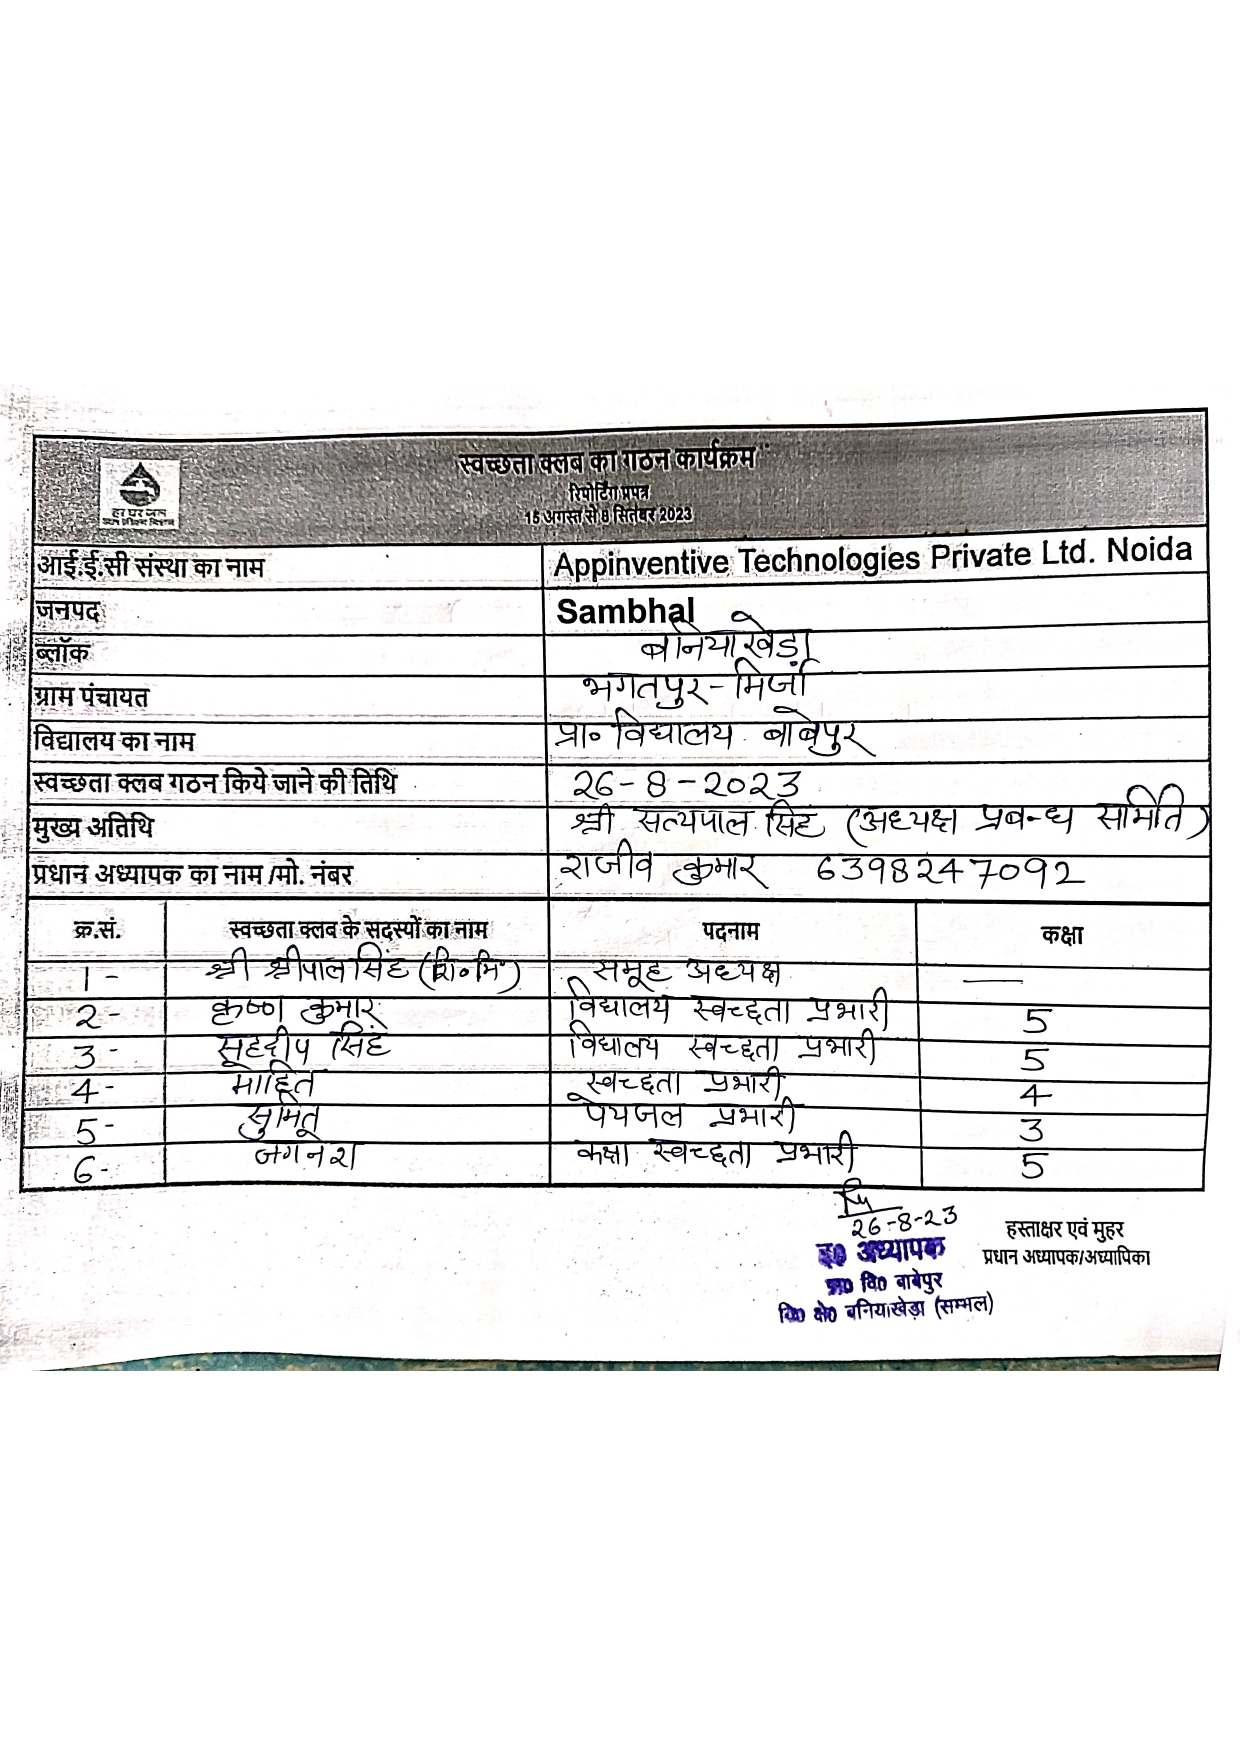 स्वच्छता क्लब का गठन कार्यक्रम
रिपोर्टिंग प्रपत्र
15 अगस्त से 8 सितंबर 2023
हर घर जल
आई.ई.सी संस्था का नाम Appinventive Technologies Private Ltd. Noida
जनपद Sambhal
ब्लॉक बनियाखेड़ा
ग्राम पंचायत भगतपुर-मिर्जा
विद्यालय का नाम प्रा॰ विद्यालय बाबेपुर
स्वच्छता क्लब गठन किये जाने की तिथि 26-8-2023
मुख्य अतिथि श्री सत्यपाल सिंह (अध्यक्ष प्रबन्ध समिति)
प्रधान अध्यापक का नाम /मो. नंबर राजीव कुमार 6398247092
क्र.सं. स्वच्छता क्लब के सदस्यों का नाम पदनाम कक्षा
1- श्री श्रीपाल सिंह (शि॰मि॰) समूह अध्यक्ष —
2- कृष्णा कुमार विद्यालय स्वच्छता प्रभारी 5
3- सिंह विद्यालय स्वच्छता प्रभारी 5
4- मोहित स्वच्छता प्रभारी 4
5- सुमित पेयजल प्रभारी 3
6- कक्षा स्वच्छता प्रभारी 5
26-8-23
इ0 अध्यापक
प्रा0 वि0 बाबेपुर
वि0 क्षे0 बनियाखेड़ा (सम्भल)
हस्ताक्षर एवं मुहर
प्रधान अध्यापक/अध्यापिका